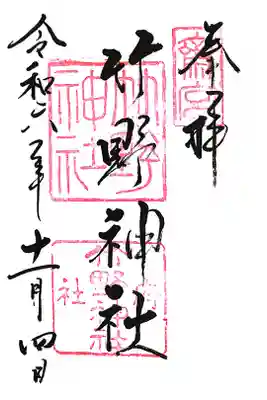 奉拝
竹野神社
令和六年十一月四日
竹野
神社